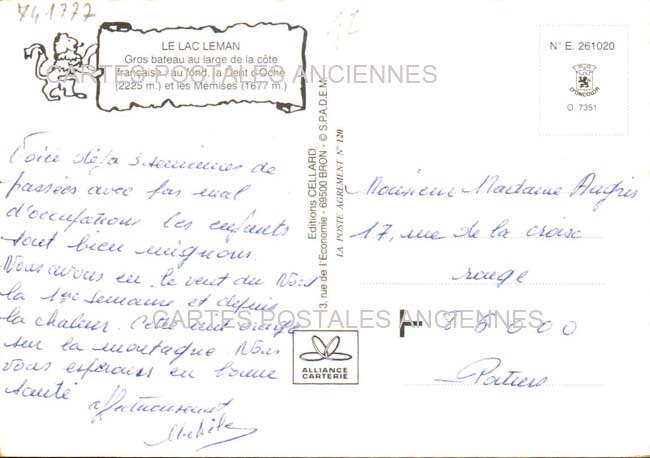 741777
LE LAC LEMAN
Gros bateau au large de la côte
française, au fond, la Dent d'Oche
(2225 m.) et les Mémises (1677 m.)
N° E. 261020
LYONCOLOR
O. 7351
CARTES POSTALES ANCIENNES
Voici déjà 3 semaines de
passées avec pas mal
d'occupations les enfants
sont bien mignons.
Nous avons eu le vent du Nord
la 1ère semaine et depuis
la chaleur. Cette nuit orage
sur la montagne Nous
vous espérons en bonne
santé Affectueusement
Michèle
Editions CELLARD
3, rue de l'Economie - 69500 BRON - © S.P.A.D.E.M.
LA POSTE AGREMENT N° 120
ALLIANCE
CARTERIE
Monsieur Madame
17, rue de la croix
rouge
CARTES POSTALES ANCIENNES
86000
Poitiers